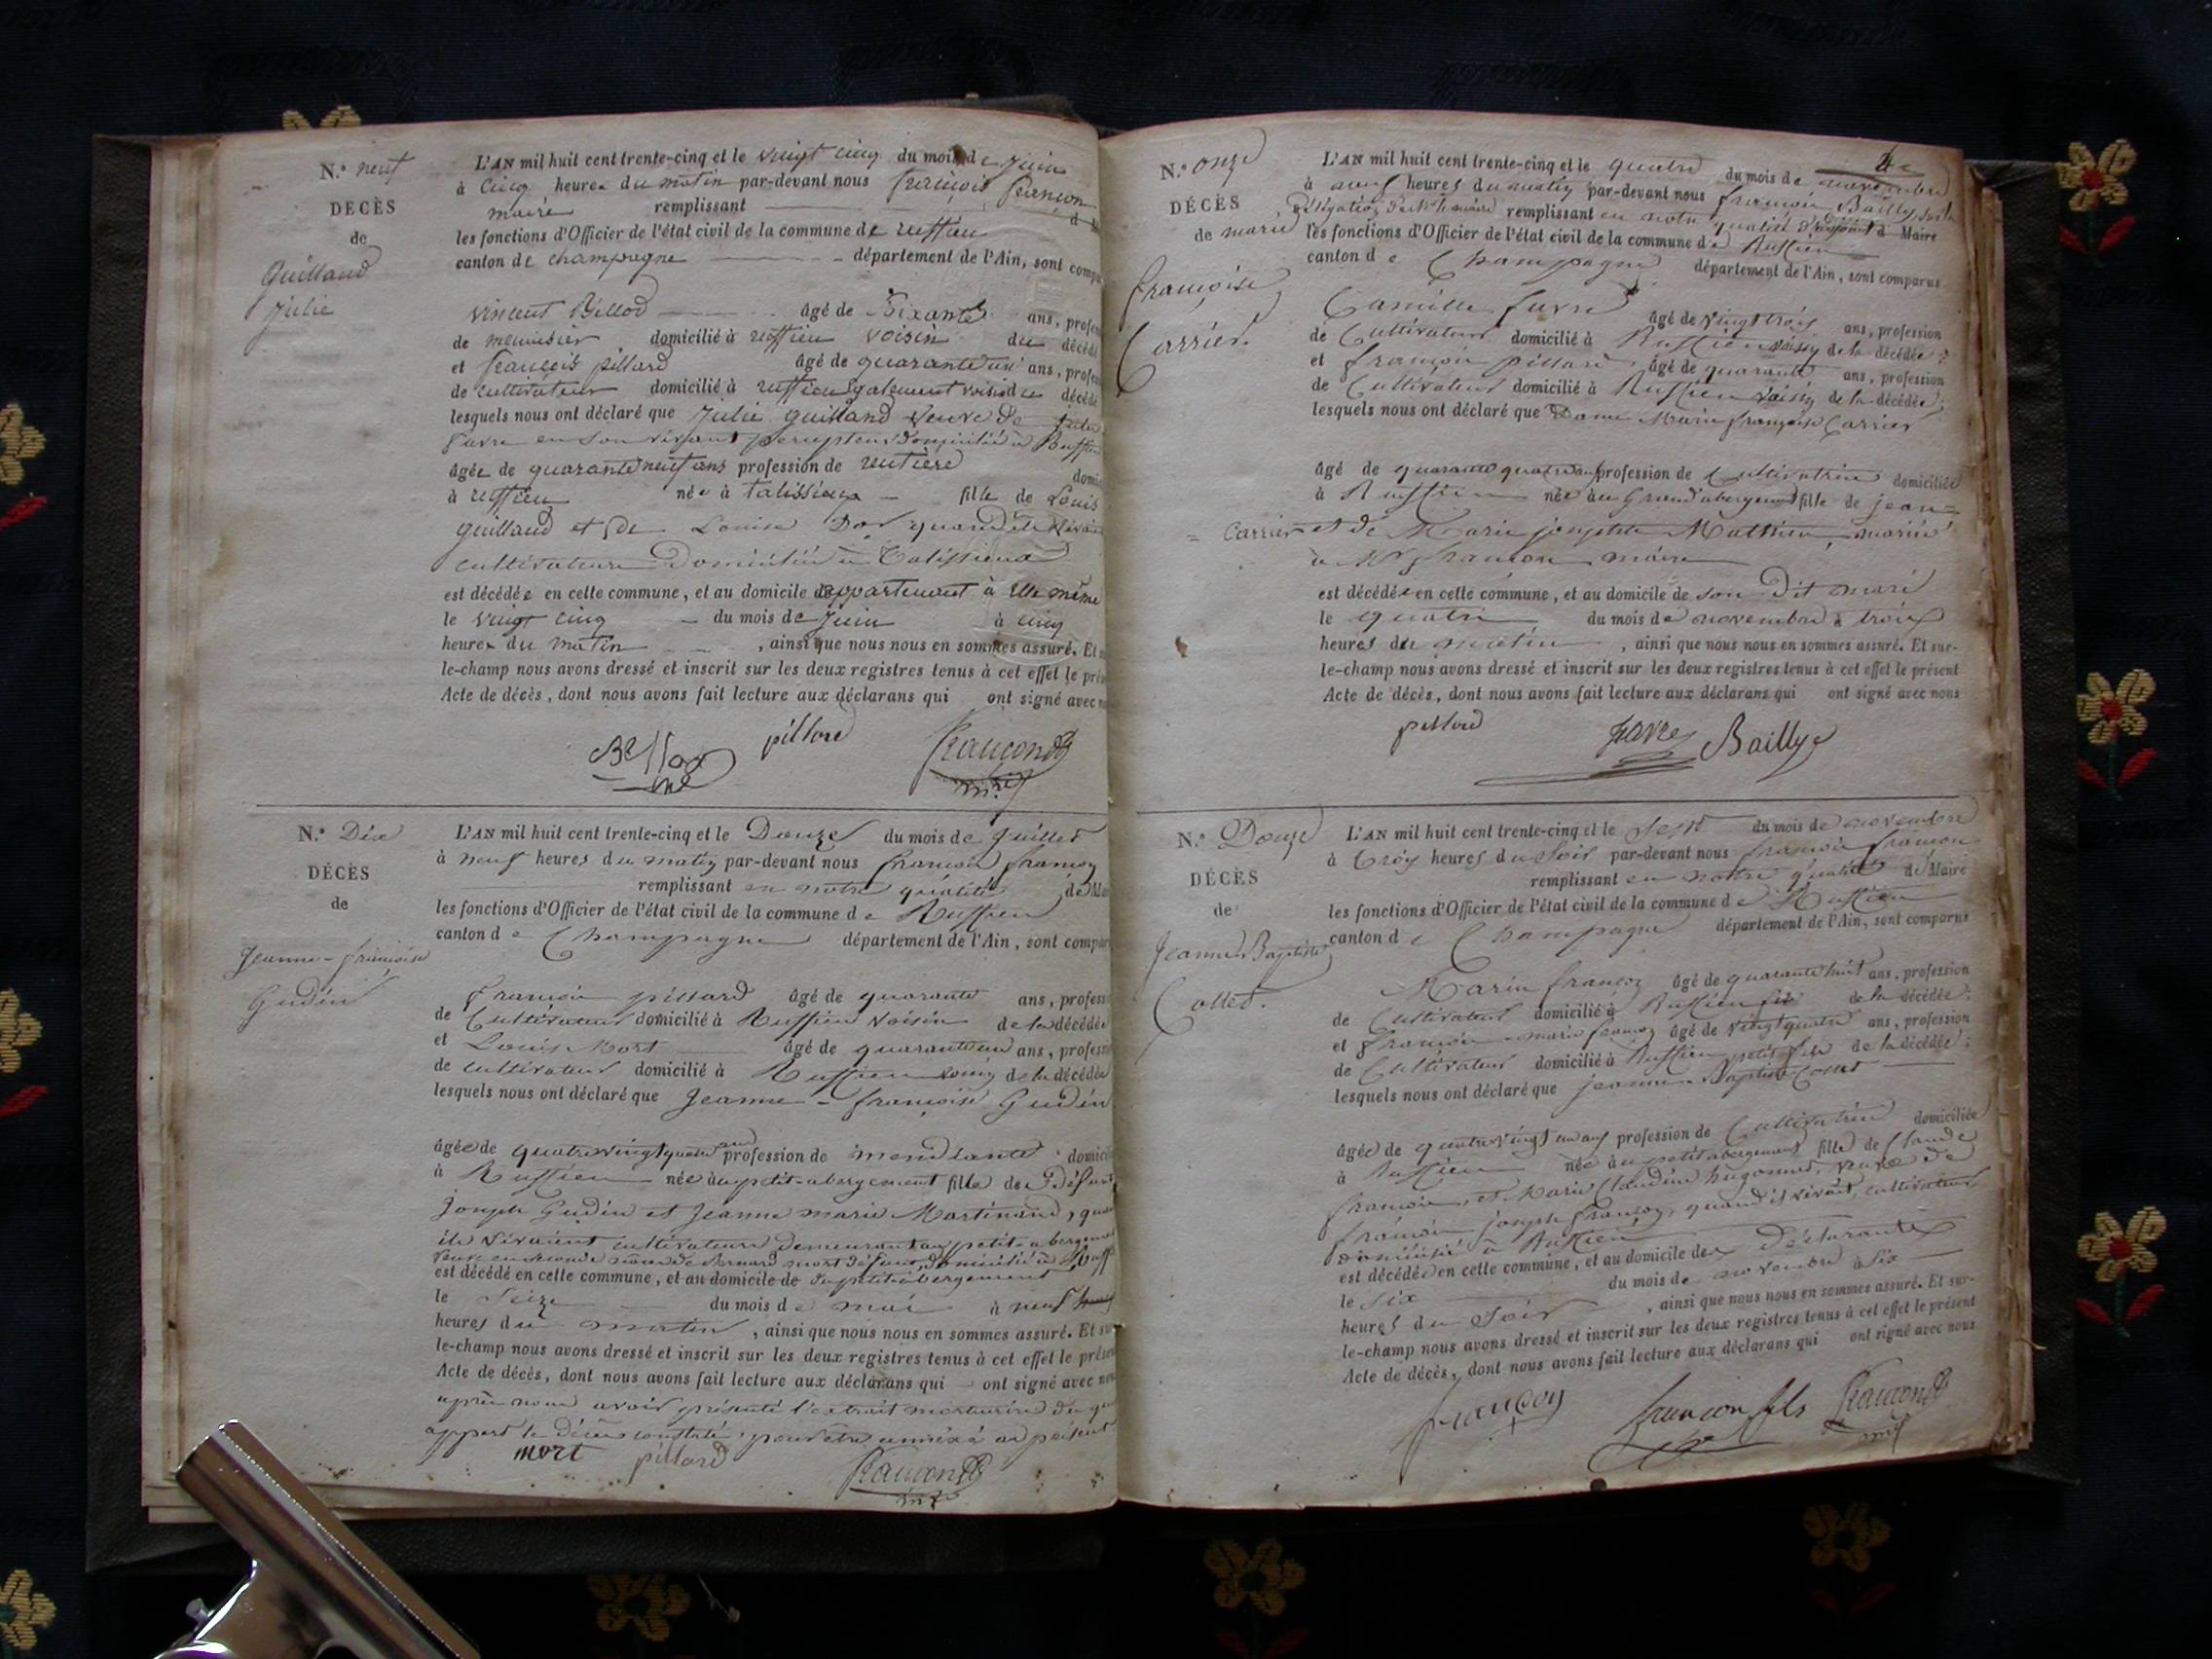 N.° neuf
DÉCÈS
de
Guilland
Julie
L'AN mil huit cent trente-cinq et le vingt cinq du mois de Juin
à cinq heures du matin par-devant nous françois françon
maire remplissant
les fonctions d'Officier de l'état civil de la commune de ruffieu
canton de champagne département de l'Ain, sont compa
vincent Billod âgé de Soixante ans, profes
de menuisier domicilié à ruffieu voisin du décédé
et françois pillard âgé de quarante un ans, profes
de cultivateur domicilié à ruffieu également voisin du décédé
lesquels nous ont déclaré que Julie guilland veuve de
favre en son vivant percepteur domicilié à Ruffieu
âgée de quarante neuf ans profession de rentière domi
à ruffieu née à talissieux fille de Louis
guilland et de Louise quand ils vivaient
cultivateurs Domiciliés à Talissieux
est décédée en cette commune, et au domicile appartenant à elle même
le vingt cinq du mois de Juin à cinq
heures du matin , ainsi que nous nous en sommes assuré. Et s
le-champ nous avons dressé et inscrit sur les deux registres tenus à cet effet le prés
Acte de décès, dont nous avons fait lecture aux déclarans qui ont signé avec n
Billod pillard françon
N.° Dix
DÉCÈS
de
Jeanne-françoise
Gudin
L'AN mil huit cent trente-cinq et le Douze du mois de Juillet
à neuf heures du matin par-devant nous françois françon
remplissant en notre qualité de Mai
les fonctions d'Officier de l'état civil de la commune de Ruffieu
canton de Champagne département de l'Ain, sont compar
françois pillard âgé de quarante ans, profess
de Cultivateur domicilié à Ruffieu voisin de la décédée
et Louis Mort âgé de quarante un ans, profess
de cultivateur domicilié à Ruffieu voisin de la décédée
lesquels nous ont déclaré que Jeanne-françoise Gudin
âgée de quatre vingt quatre ans profession de mendiante domici
à Ruffieu née au petit-abergement fille de Défunt
Joseph Gudin et Jeanne marie Martinand, quand
ils vivaient cultivateurs demeurant au petit-abergement
veuve en seconde noce de Bernard mort défunt, domicilié à Ruff
est décédé en cette commune, et au domicile de du petit abergement
le Seize du mois de mai à neuf
heures du matin , ainsi que nous nous en sommes assuré. Et su
le-champ nous avons dressé et inscrit sur les deux registres tenus à cet effet le prése
Acte de décès, dont nous avons fait lecture aux déclarans qui ont signé avec nou
après nous avoir présenté l'extrait mortuaire du quel
appert le décès constaté, pour être annexé au présent
mort pillard françon
N.° onze
DÉCÈS
de marie
françoise
Carrier.
L'AN mil huit cent trente-cinq et le quatre du mois de novembre
à neuf heures du matin par-devant nous françois Bailly, par la
Délégation de Mr le maire remplissant en notre qualité d'adjoint d Maire
les fonctions d'Officier de l'état civil de la commune de Ruffieu
canton de Champagne département de l'Ain, sont comparus
Camille favre âgé de vingt trois ans, profession
de Cultivateur domicilié à Ruffieu voisin de la décédée ;
et françois pillard âgé de quarante ans, profession
de Cultivateur domicilié à Ruffieu voisin de la décédée ;
lesquels nous ont déclaré que Dame Marie françoise Carrier
âgé de quarante quatre ans profession de Cultivatrice domiciliée
à Ruffieu née au Grand abergement fille de jean
Carrier et de Marie josephte Mathieu, mariée
à Mr françon maire
est décédée en cette commune, et au domicile de son Dit mari
le quatre du mois de novembre à trois
heures du matin , ainsi que nous nous en sommes assuré. Et sur-
le-champ nous avons dressé et inscrit sur les deux registres tenus à cet effet le présent
Acte de décès, dont nous avons fait lecture aux déclarans qui ont signé avec nous
pillard favre Bailly
N.° Douze
DÉCÈS
de
Jeanne Baptiste
Collet.
L'AN mil huit cent trente-cinq et le Sept du mois de novembre
à trois heures du Soir par-devant nous françois françon
remplissant en notre qualité de Maire
les fonctions d'Officier de l'état civil de la commune de Ruffieu
canton de Champagne département de l'Ain, sont comparus
Marin françon âgé de quarante huit ans, profession
de Cultivateur domicilié à Ruffieu fils de la décédée ;
et françois-marie françon âgé de vingt quatre ans, profession
de Cultivateur domicilié à Ruffieu petit fils de la décédée ;
lesquels nous ont déclaré que jeanne-Baptiste Collet
âgée de quatre vingt un ans profession de Cultivatrice domiciliée
à Ruffieu née au petit abergement fille de Claude
françois, et Marie Claudine hugonnet, veuve de
françois joseph françon, quand il vivait, cultivateur
domicilié à Ruffieu
est décédée en cette commune, et au domicile des Déclarants
le Six du mois de novembre à Six
heures du Soir , ainsi que nous nous en sommes assuré. Et sur-
le-champ nous avons dressé et inscrit sur les deux registres tenus à cet effet le présent
Acte de décès, dont nous avons fait lecture aux déclarans qui ont signé avec nous
françon françon fils françon